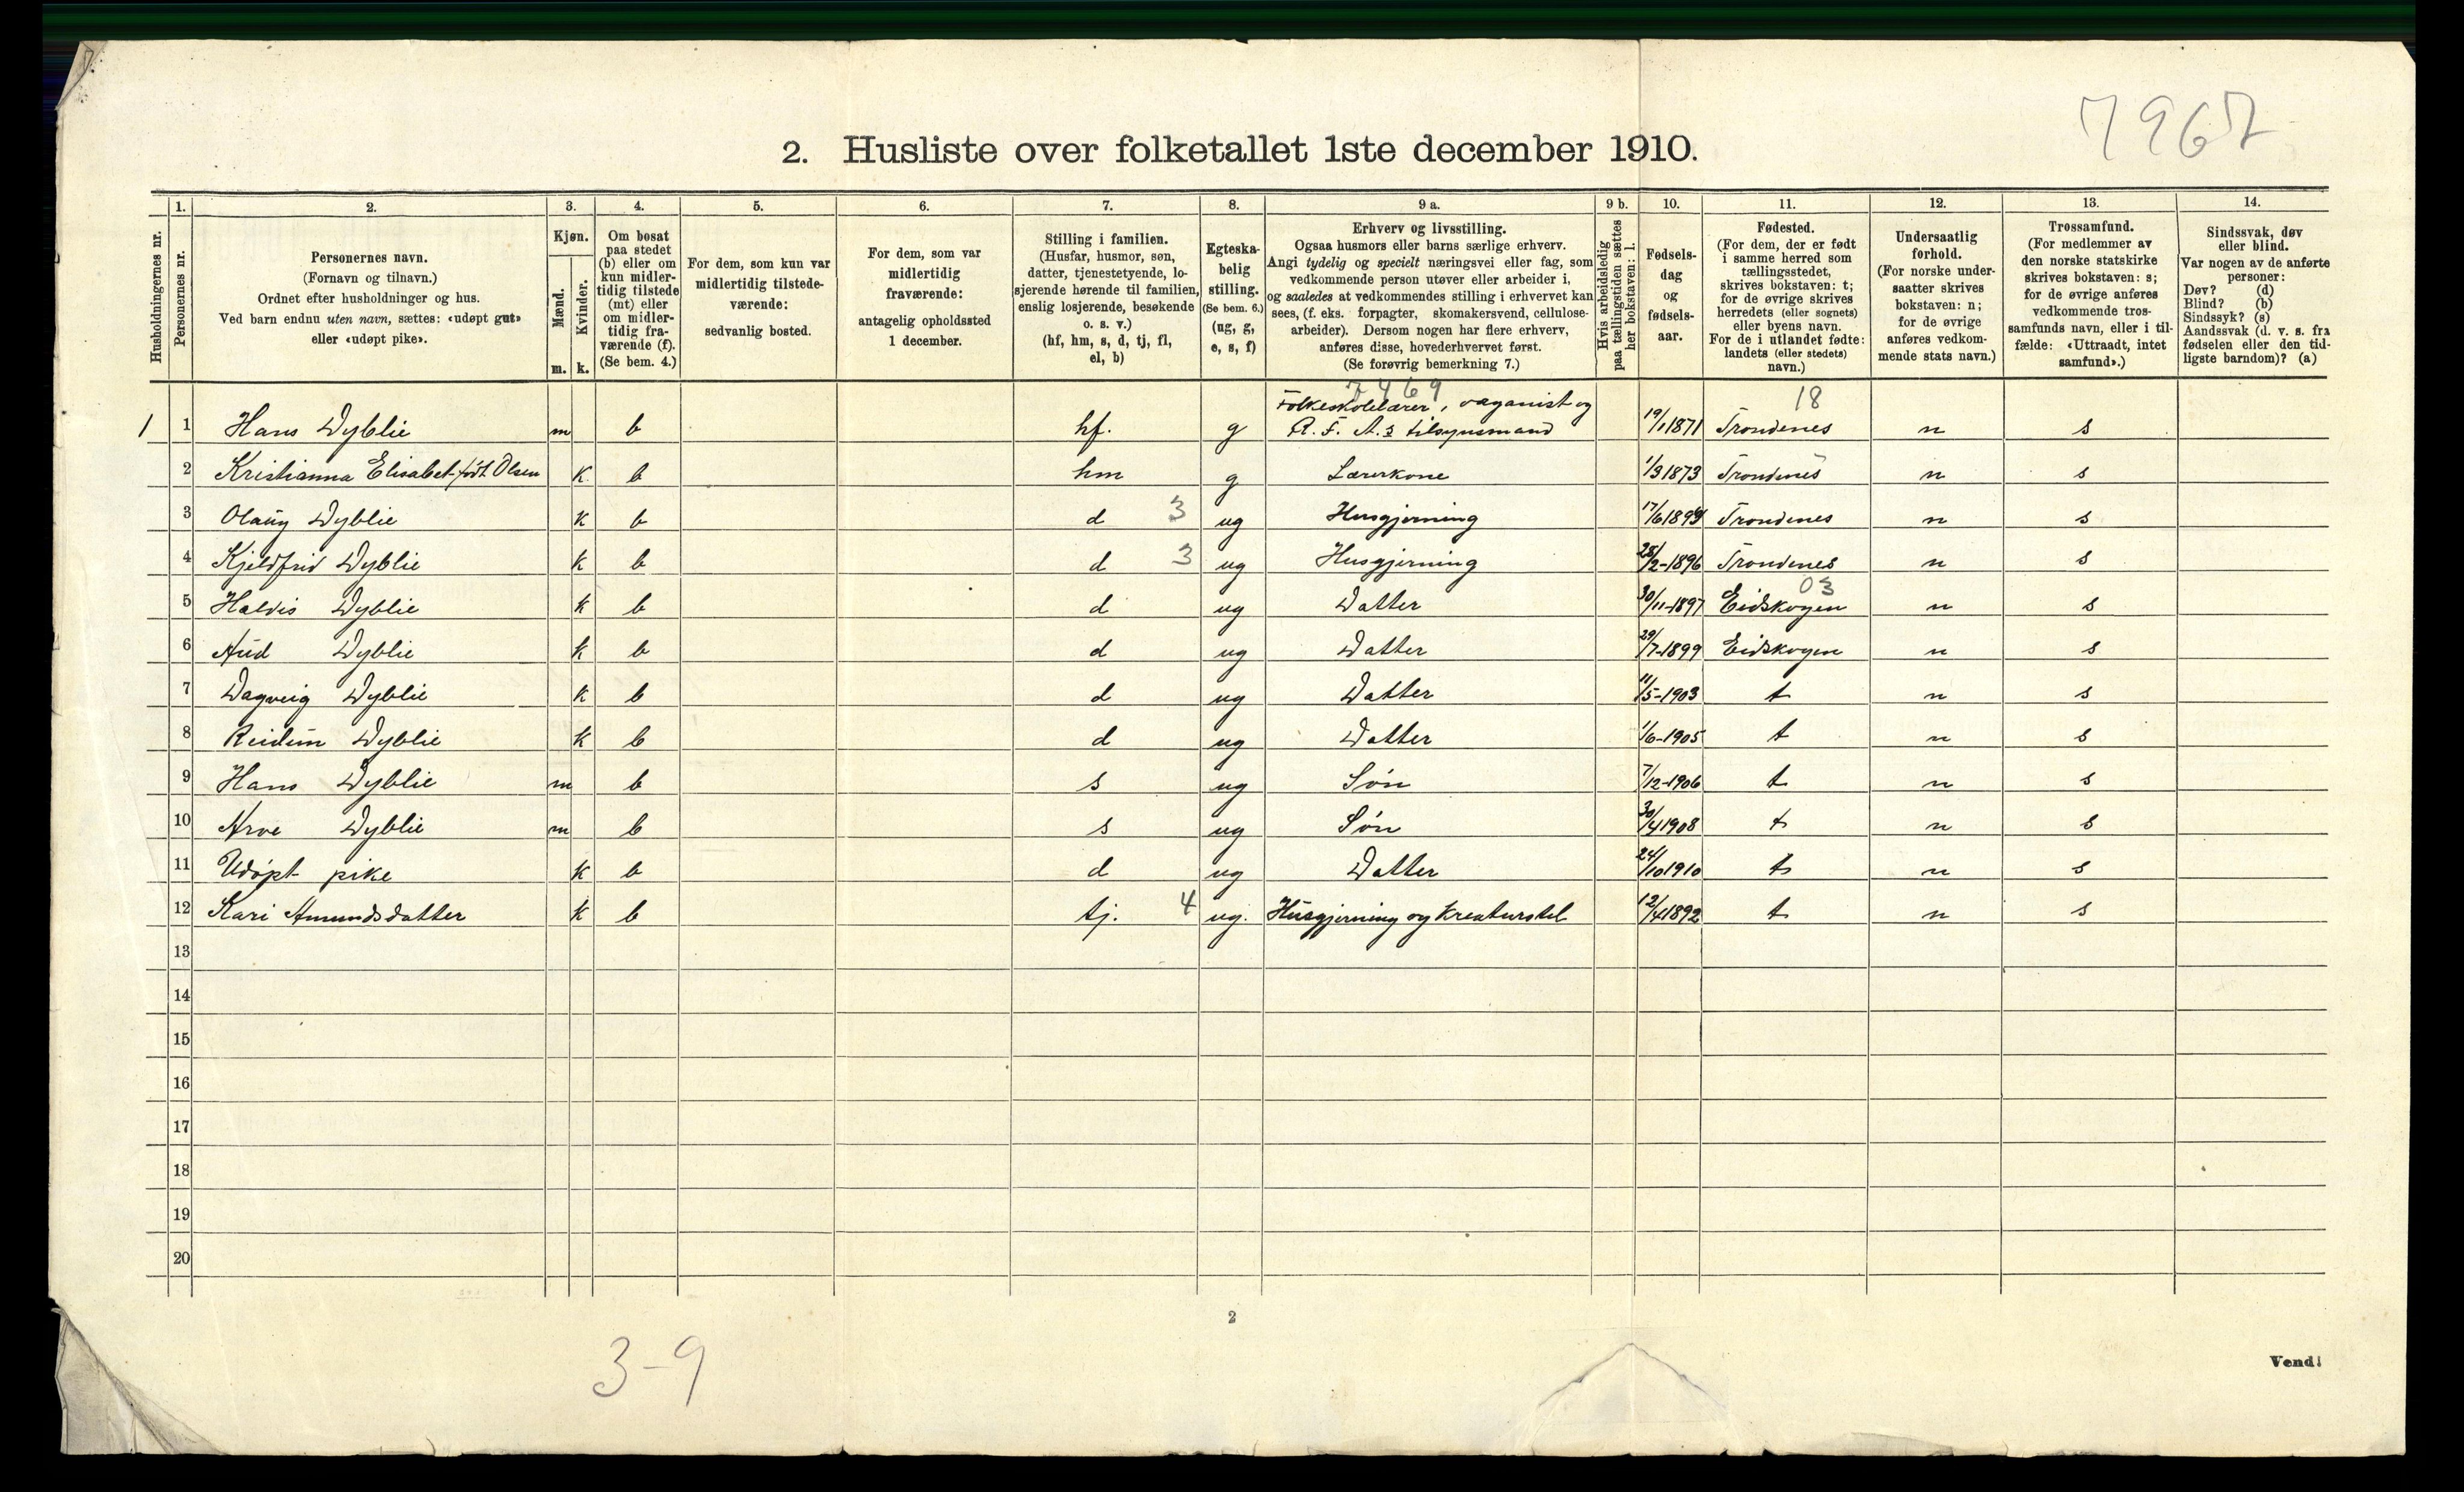 7967
2. Husliste over folketallet 1ste december 1910.
Husholdningernes nr.
1.
Personernes nr.
2.
Personernes navn.
(Fornavn og tilnavn.)
Ordnet efter husholdninger og hus.
Ved barn endnu uten navn, sættes: «udøpt gut»
eller «udøpt pike».
3.
Kjøn.
Mænd.
Kvinder.
m. k.
4.
Om bosat
paa stedet
(b) eller om
kun midler-
tidig tilstede
(mt) eller
om midler-
tidig fra-
værende (f).
(Se bem. 4.)
5.
For dem, som kun var
midlertidig tilstede-
værende:
sedvanlig bosted.
6.
For dem, som var
midlertidig
fraværende:
antagelig opholdssted
1 december.
7.
Stilling i familien.
(Husfar, husmor, søn,
datter, tjenestetyende, lo-
sjerende hørende til familien,
enslig losjerende, besøkende
o. s. v.)
(hf, hm, s, d, tj, fl,
el, b)
8.
Egteska-
belig
stilling.
(Se bem. 6.)
(ug, g,
e, s, f)
9 a.
Erhverv og livsstilling.
Ogsaa husmors eller barns særlige erhverv.
Angi tydelig og specielt næringsvei eller fag, som
vedkommende person utøver eller arbeider i,
og saaledes at vedkommendes stilling i erhvervet kan
sees, (f. eks. forpagter, skomakersvend, cellulose-
arbeider). Dersom nogen har flere erhverv,
anføres disse, hovederhvervet først.
(Se forøvrig bemerkning 7.)
9 b.
Hvis arbeidsledig
paa tællingstiden sættes
her bokstaven: l.
10.
Fødsels-
dag
og
fødsels-
aar.
11.
Fødested.
(For dem, der er født
i samme herred som
tællingsstedet,
skrives bokstaven: t;
for de øvrige skrives
herredets (eller sognets)
eller byens navn.
For de i utlandet fødte:
landets (eller stedets)
navn.)
12.
Undersaatlig
forhold.
(For norske under-
saatter skrives
bokstaven: n;
for de øvrige
anføres vedkom-
mende stats navn.)
13.
Trossamfund.
(For medlemmer av
den norske statskirke
skrives bokstaven: s;
for de øvrige anføres
vedkommende tros-
samfunds navn, eller i til-
fælde: «Uttraadt, intet
samfund».)
14.
Sindssvak, døv
eller blind.
Var nogen av de anførte
personer:
Døv? (d)
Blind? (b)
Sindssyk? (s)
Aandssvak (d. v. s. fra
fødselen eller den tid-
ligste barndom)? (a)
7469 18
Folkeskolelærer, organist og
1 1 Hans Dyblie m b hf. g R. F. A.s tilsynsmand 19/1 1871 Trondenes n s
2 Kristianna Elisabet født Olsen k b hm g Lærerkone 1/3 1873 Trondenes n s
3 Olaug Dyblie k b d 3 ug Husgjerning 17/6 Trondenes n s
4 Kjeldfrid Dyblie k b d 3 ug Husgjerning 28/2-1896 Trondenes n s
03
5 Haldis Dyblie k b d ug Datter 30/11-1897 Eidskogen n s
6 Aud Dyblie k b d ug Datter 29/7-1899 Eidskogen n s
7 Dagveig Dyblie k b d ug Datter 11/5-1903 t n s
8 Reidun Dyblie k b d ug Datter 1/6-1905 t n s
9 Hans Dyblie m b s ug Søn 7/12-1906 t n s
10 Arve Dyblie m b s ug Søn 30/4 1908 t n s
11 Udøpt pike k b d ug Datter 24/10 1910 t n s
12 Kari Amundsdatter k b tj. 4 ug. Husgjerning og kreaturstel 12/4 1892 t n s
13
14
15
16
17
18
19
20
2
3-9
Vend!